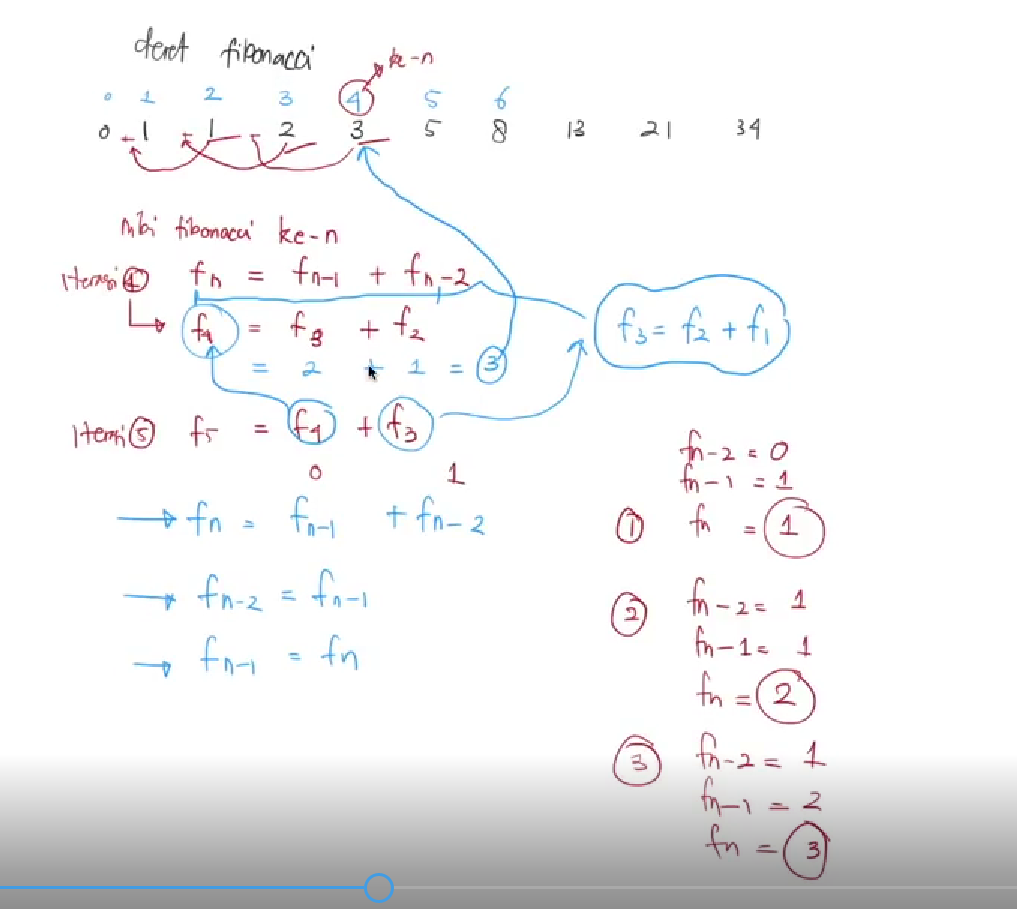 deret fibonacci
ke-n
0 1 2 3 4 5 6
0 1 1 2 3 5 8 13 21 34
nilai fibonacci ke-n
Iterasi 4 fn = fn-1 + fn-2
f4 = f3 + f2
= 2 + 1 = 3
f3 = f2 + f1
Iterasi 5 f5 = f4 + f3
0 1
→ fn = fn-1 + fn-2
→ fn-2 = fn-1
→ fn-1 = fn
fn-2 = 0
fn-1 = 1
① fn = 1
② fn-2 = 1
fn-1 = 1
fn = 2
③ fn-2 = 1
fn-1 = 2
fn = 3